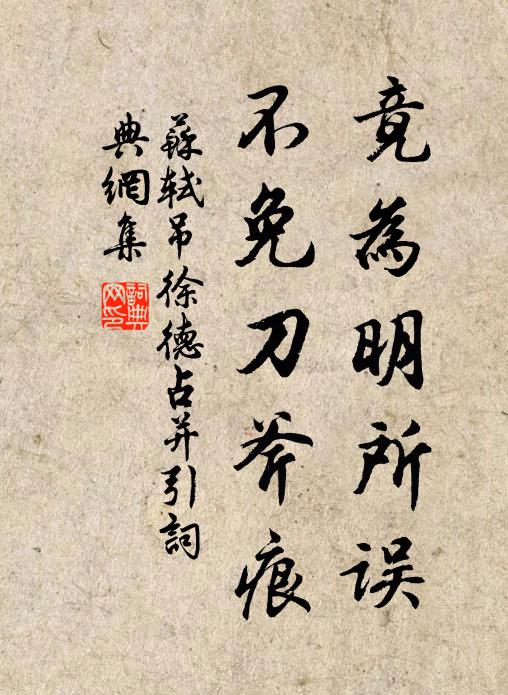 竟為明所误
不免刀斧痕
蘇軾吊徐德占并引詞
典網集
詞典
网印